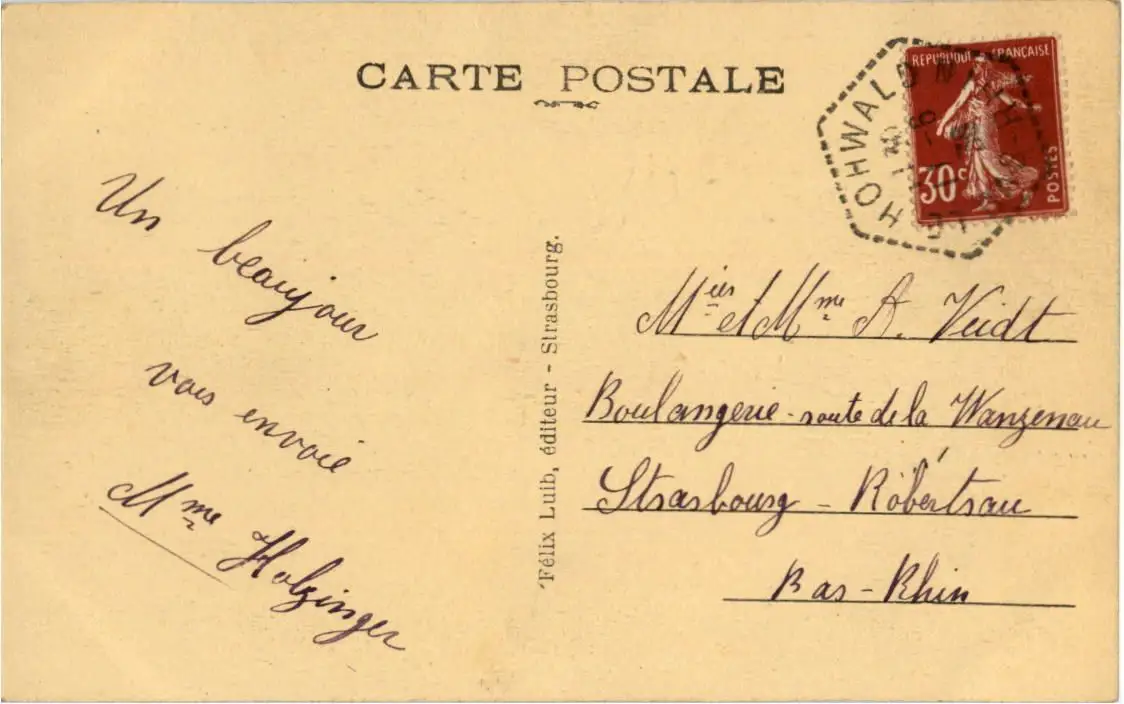 CARTE POSTALE
REPUBLIQUE FRANÇAISE
30c
POSTES
HOHWALD
Un
beaujour
vous envoie
Mme Holzinger
Félix Luib, éditeur - Strasbourg.
Mies et Mme A. Veidt
Boulangerie - route de la Wanzenau
Strasbourg - Robertsau
Bas-Rhin